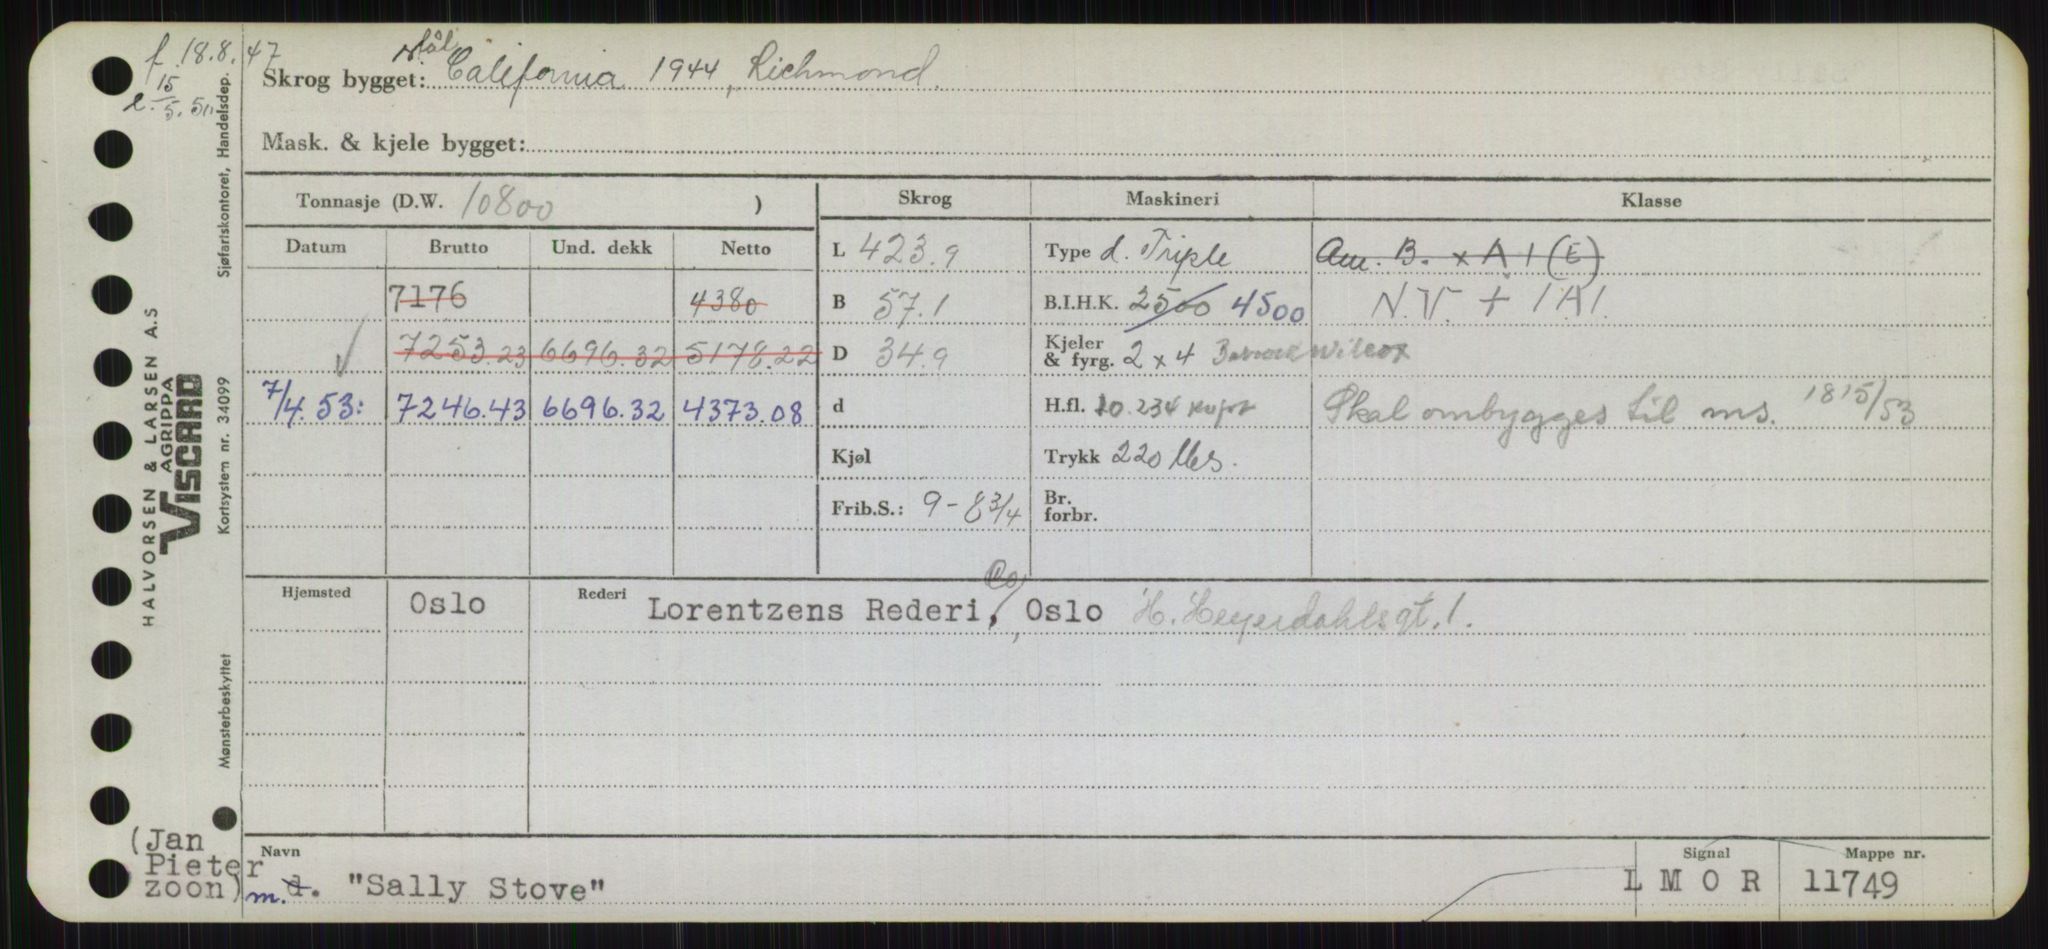 f. 18.8.47
15
5.
stål
Skrog bygget: California 1944, Richmond.
Mask. & kjele bygget:
Tonnasje (D.W. 10800 )
Skrog Maskineri Klasse
Datum Brutto Und. dekk Netto
L 423.9 Type d. Triple Am. B. x A 1 (E)
7176 4380
B 57.1 B.I.H.K. 2500 4500 N.V. + 1A1.
7253.23 6696.32 5178.22
D 34.9 Kjeler & fyrg. 2 x 4 Babcock Wilcox
7/4.53: 7246.43 6696.32 4373.08
d H.fl. 10.234 kvfot Skal ombygges til ms. 1815/53
Kjøl Trykk 220 lbs.
Frib.S.: 9-8 3/4 Br. forbr.
Hjemsted Oslo Rederi Lorentzens Rederi Co, Oslo H. Heyerdahlsgt. 1.
(Jan
Pieter
zoon)
Navn
m. d. "Sally Stove"
Signal
L M O R
Mappe nr.
11749
HALVORSEN & LARSEN A.S
AGRIPPA
VISCARD
Sjøfartskontoret, Handelsdep.
Kortsystem nr. 34099
Mønsterbeskyttet